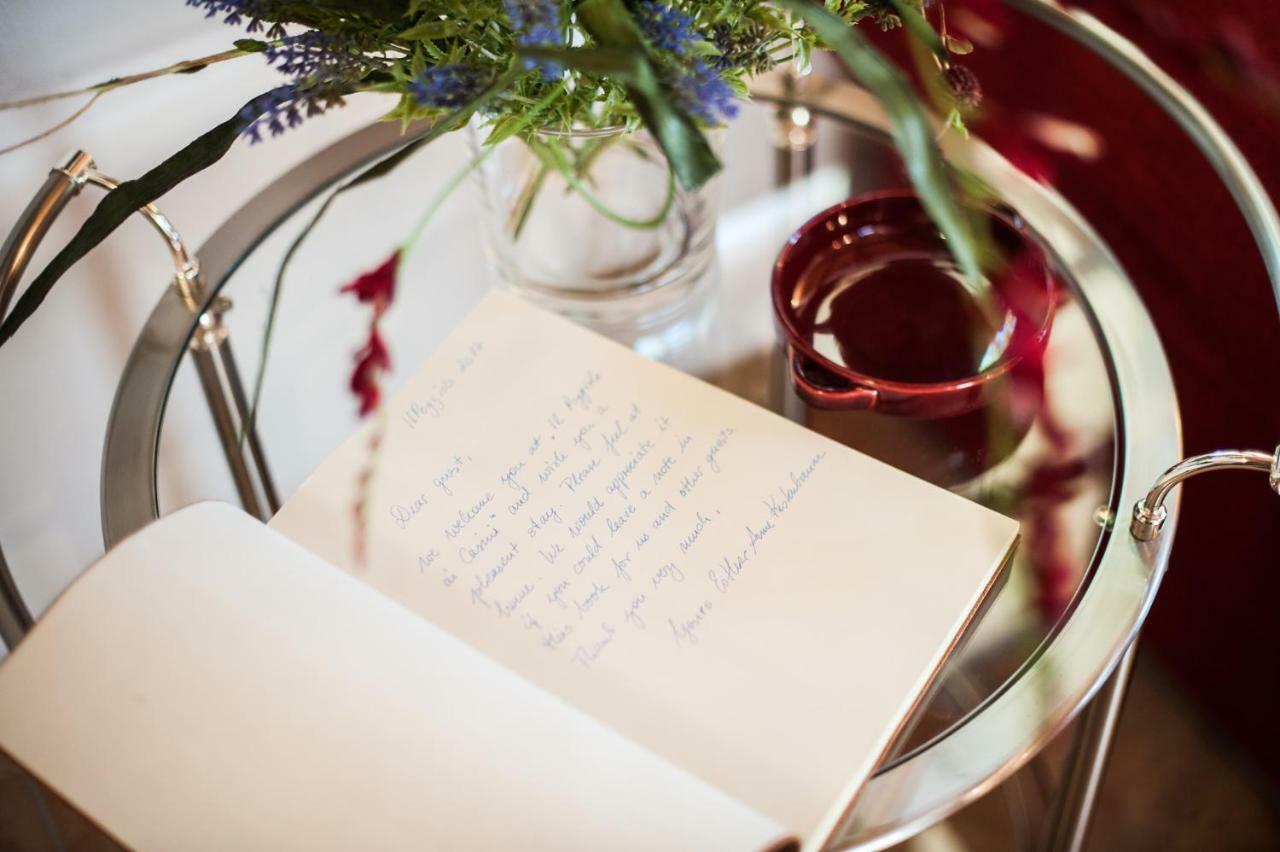 Il Poggiolo 2017
Dear guest,
we welcome you at "Il Poggiolo
ai Casini" and wish you a
pleasant stay. Please feel at
home. We would appreciate it
if you could leave a note in
this book for us and other guests.
Thank you very much,
Yours Esther Anne